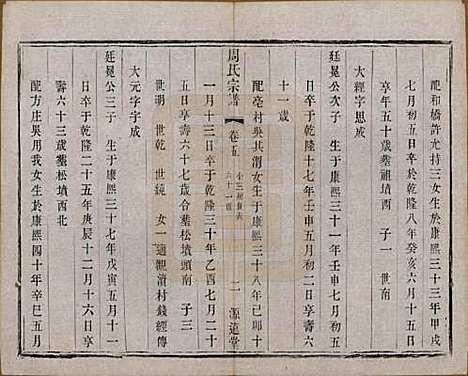 配和橋許允持三女生於康熙三十三年甲戌
七月初五日卒於乾隆八年癸亥六月十五日
享年五十歲墓祖墳西 子一 世南
大經字思成
廷晃公次子 生於康熙三十一年壬申七月初五
日卒於乾隆十七年壬申五月初二日享壽六
十一歲
周氏宗譜
卷五
小三房長衣
六十一世
二
源遠堂
配亳村吳其渭女生于康熙三十八年己卯十
一月十三日卒於乾隆三十年乙酉七月初
五日享壽六十七歲合墓松墳頭南 子三
世朔 世乾 世統 女一適觀瀆村錢經傳
大元字宇成
廷晃公三子 生于康熙三十七年戊寅五月十一
日卒于乾隆二十五年庚辰十二月十六日享
壽六十三歲墓松墳西北
配方庄吳用我女生於康熙四十年辛巳五月